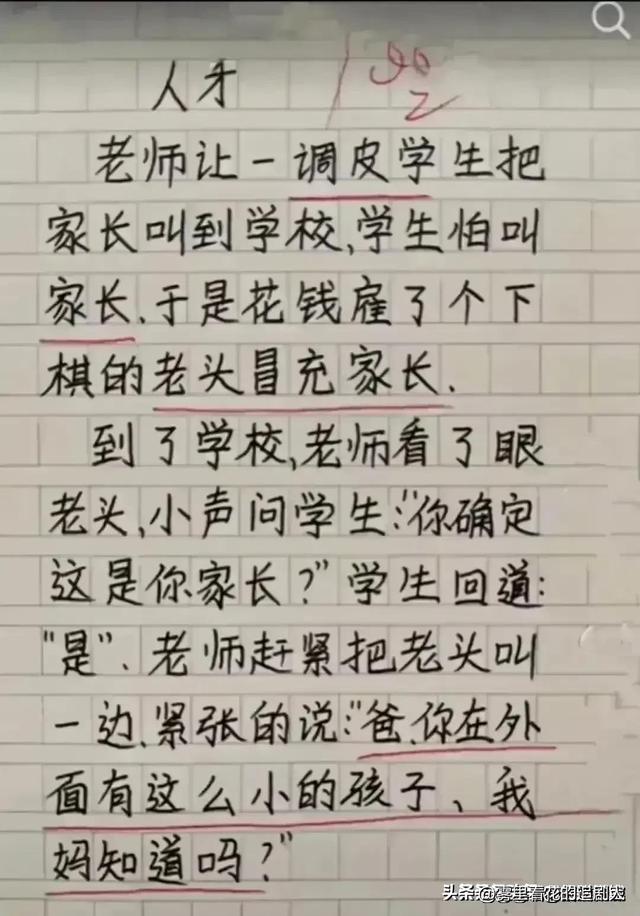 人才
老师让一调皮学生把
家长叫到学校,学生怕叫
家长.于是花钱雇了个下
棋的老头冒充家长.
到了学校,老师看了眼
老头,小声问学生:"你确定
这是你家长?"学生回道:
"是".老师赶紧把老头叫
一边,紧张的说:"爸,你在外
面有这么小的孩子、我
妈知道吗?"